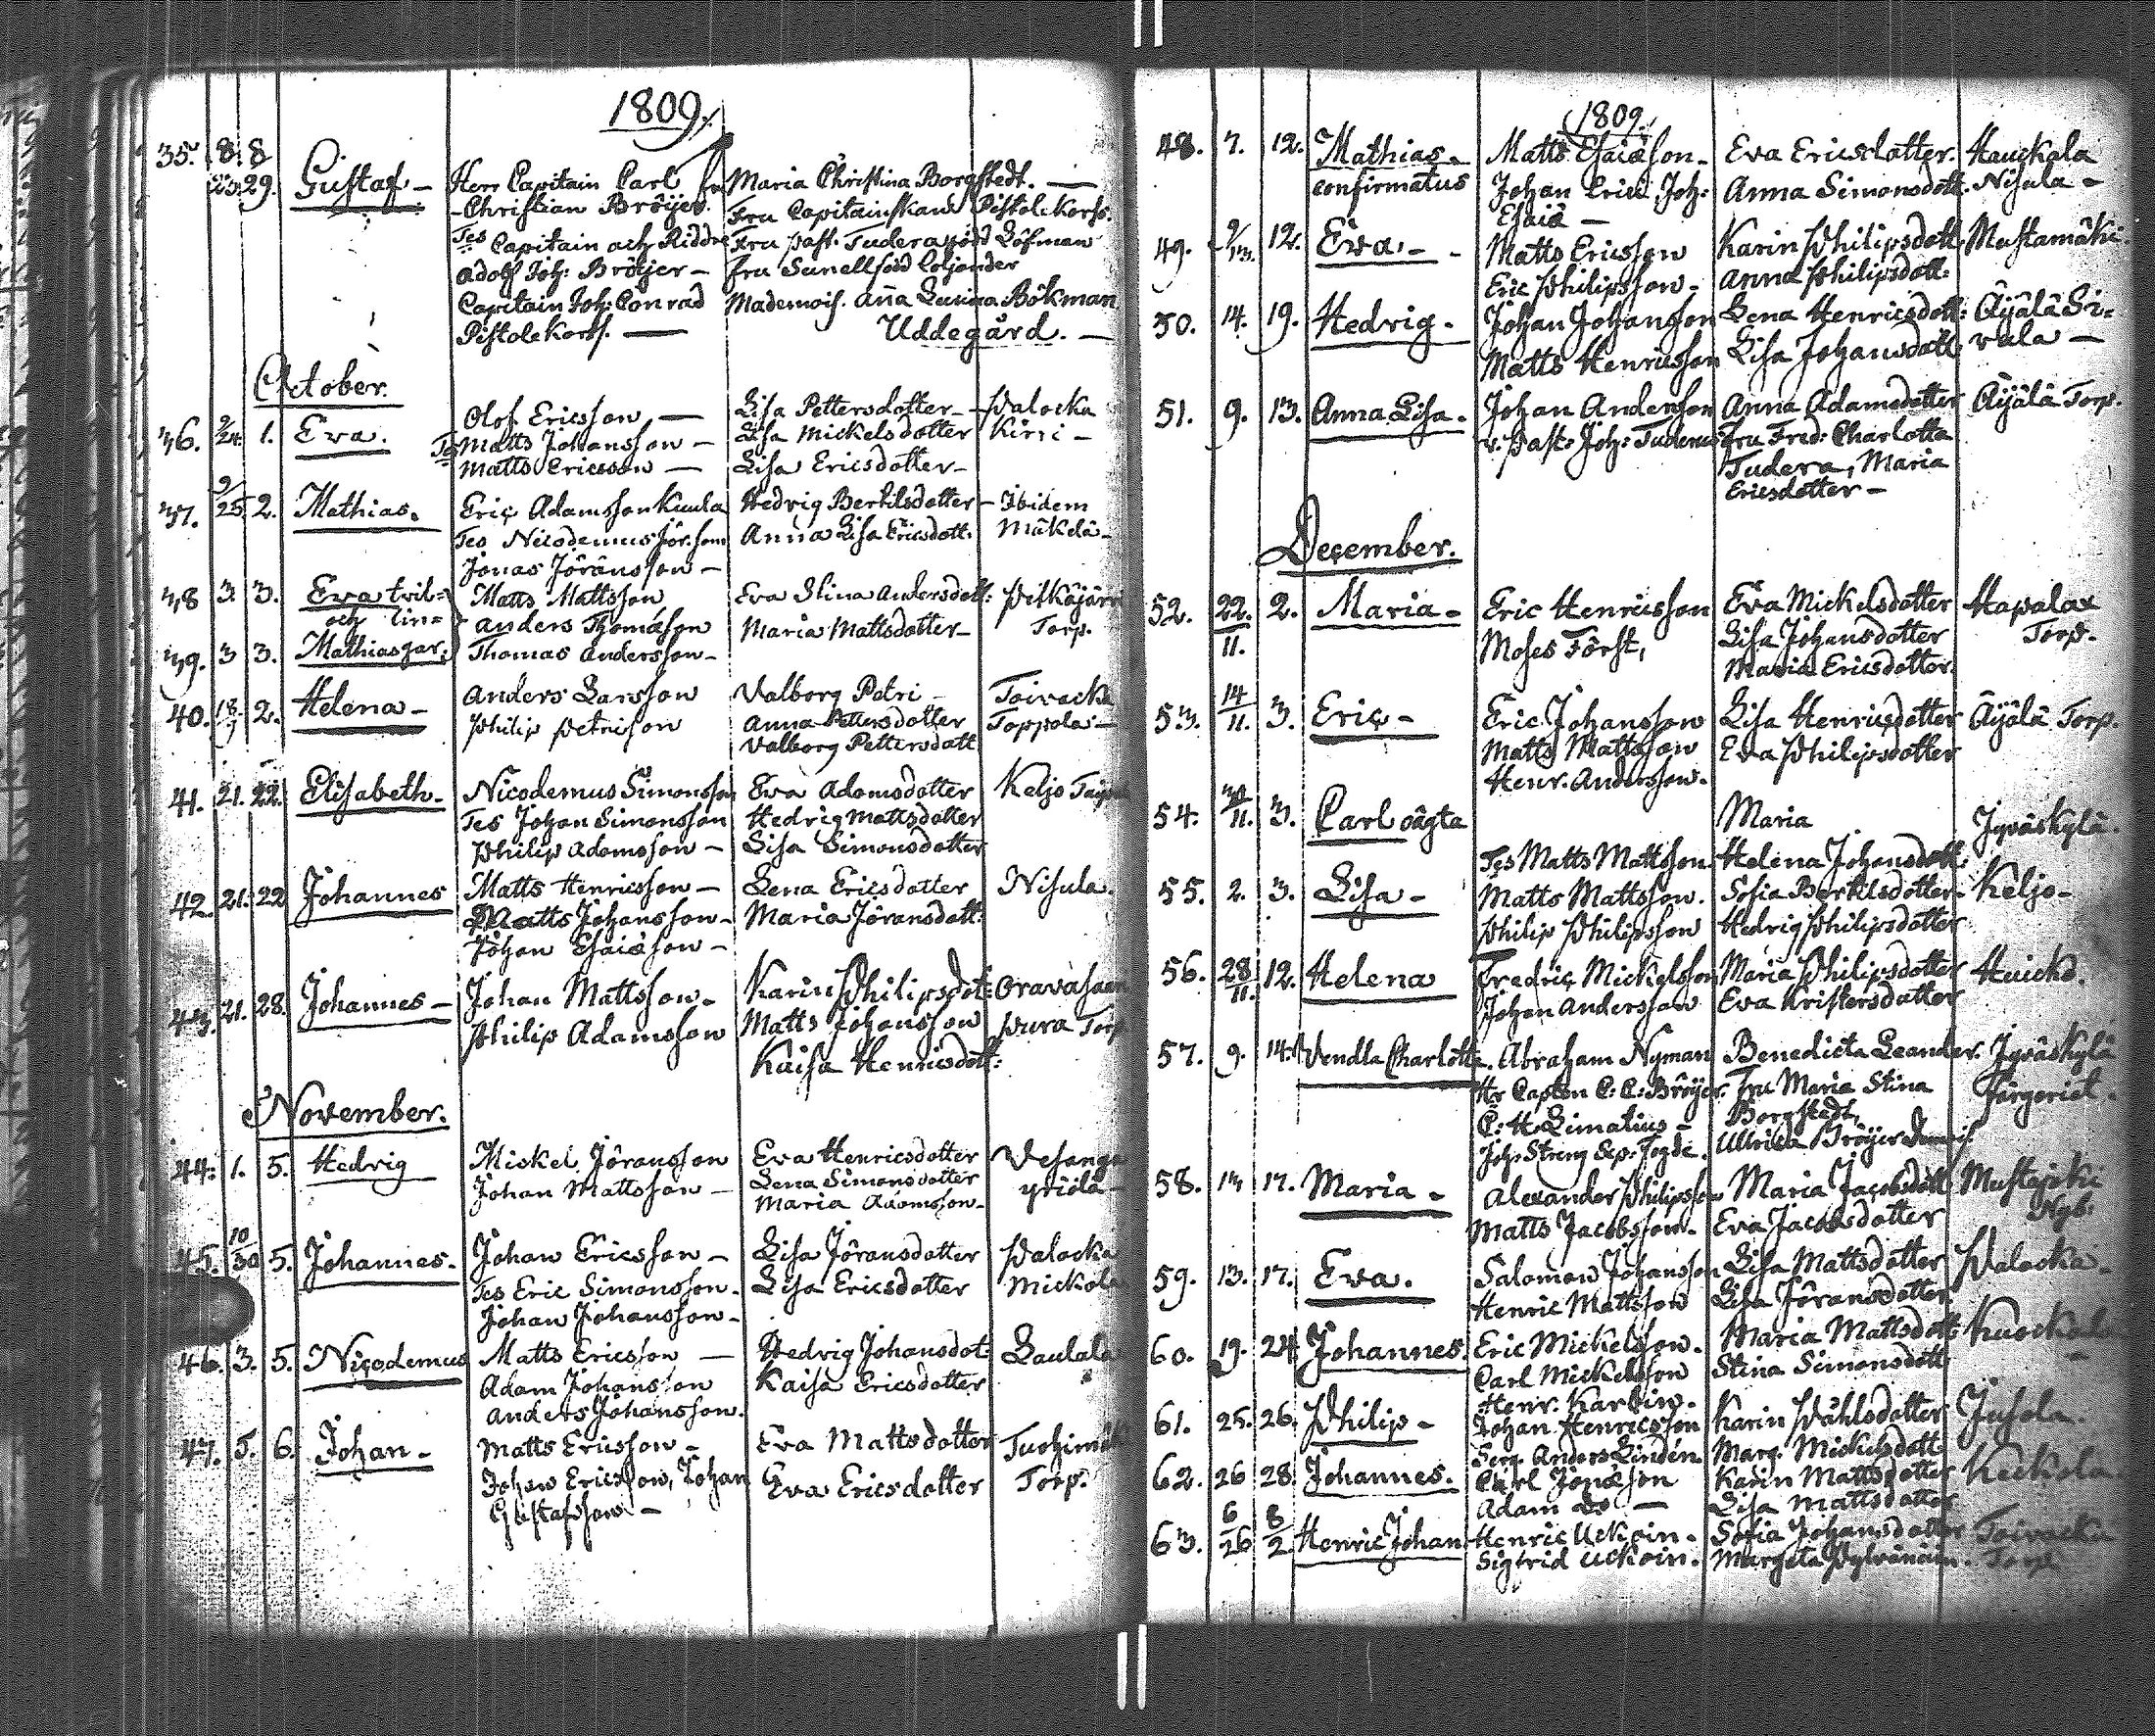 1809.
35. 8. 8
29. Gustaf - Herr Capitain Carl Maria Christina Borgstedt. -
Christian Bröijer. Fru Capitainskan Pistolekors.
Tes Capitain och Riddre Fru past. Tudera född Löfman
Adolf Joh: Bröijer - Fru Sunell född
Capitain Joh: Conrad Mademois. Aña Bökman
Pistolekors. - Uddegård. -
October.
36. 9/24. 1. Eva. Olof Ericsson - Lisa Pettersdotter - Palocka
Tes Matts Johansson - Lisa Mickelsdotter Kirri -
Matts Ericsson - Lisa Ericsdotter -
37. 9/25. 2. Mathias. Eric Adamsson Kuula Hedvig Bertilsdotter - Ibidem
Tes Nicodemus Anna Lisa Ericsdott: Mäkelä -
Jonas Jöransson -
38 3. 3. Eva tvil= Matts Mattsson Eva Stina Andersdott:
och lin= Anders Thomasson Maria Mattsdotter - Torp.
39. 3 3. Mathias gar. Thomas Andersson -
40. 18/9 2. Helena - Anders Larsson Valborg Petri - Toivacka
Philip Petrisson Anna Pettersdotter Toppola -
Valborg Pettersdott
41. 21. 22. Elisabeth. Nicodemus Simonsson Eva Adamsdotter Keljo
Tes Johan Simonsson Hedvig Mattsdotter
Philip Adamsson - Lisa Simonsdotter
42. 21. 22 Johannes Matts Henricsson - Lena Ericsdotter Nisula.
Matts Johansson - Maria Jöransdott:
Johan Esaiasson -
43. 21. 28. Johannes - Johan Mattsson - Karin Philipsdott: Oravasaari
Philip Adamsson Matts Johansson Pura Torp
Kaisa Henricsdott:
November.
44. 1. 5. Hedvig Mickel Jöransson Eva Henricsdotter Vesanga
Johan Mattsson - Lena Simonsdotter
Maria Adamsson -
45. 10/30 5. Johannes. Johan Ericsson - Lisa Jöransdotter Palocka
Tes Eric Simonsson. Lisa Ericsdotter Mickola
Johan Johansson -
46. 3. 5. Nicodemus Matts Ericsson - Hedvig Johansdot: Laulala
Adam Johansson Kaisa Ericsdotter
Anders Johansson.
47. 5. 6. Johan - Matts Ericsson - Eva Mattsdotter
Johan Ericsson, Johan Eva Ericsdotter Torp.
Gustafsson -
1809.
48. 7. 12. Mathias. Matts Esaiasson. Eva Ericsdotter. Hauckala
confirmatus Johan Eric Joh: Anna Simonsdott. Nisula -
Esaias -
49. 9/ 12. Eva. - Matts Ericsson Karin Philipsdott Mustamäki.
Eric Philipsson - Anna Philipsdott:
50. 14. 19. Hedvig. Johan Johansson Lena Henricsdott: Äijälä Si=
Matts Henricsson Lisa Johansdott vula -
51. 9. 13. Anna Lisa. Johan Andersson Anna Adamsdotter Äijälä Torp.
v. Past: Joh: Tuderus Fru Fred: Charlotta
Tudera, Maria
Ericsdotter -
December.
52. 22./11. 2. Maria - Eric Henricsson Eva Mickelsdotter Hapalax
Moses Först, Lisa Johansdotter Torp.
Maria Ericsdotter.
53. 14/11. 3. Eric - Eric Johansson Lisa Henricsdotter Äijälä Torp.
Matts Mattsson Eva Philipsdotter
Henr. Andersson.
54. 30/11. 3. Carl oägta Maria Jyväskylä.
Tes Matts Mattsson. Helena Johansdott:
55. 2. 3. Lisa - Matts Mattsson. Sofia Bertilsdotter - Keljo -
Philip Philipsson Hedvig Philipsdotter
56. 28/11. 12. Helena Fredric Mickelsson Maria Philipsdotter
Johan Andersson Eva Kristersdotter
57. 9. 14. Vendla Charlotta. Abraham Nyman Benedicta Leander. Jyväskylä
Hr Capten C: C: Bröijer. Fru Maria Stina Färgeriet.
C: H. Limatius - Borgstedt,
Joh: Streng Ullrica Bröijer
58. 13 17. Maria - Alexander Philipsson Maria Jacobsdott
Matts Jacobsson. Eva Jacobsdotter Nyb.
59. 13. 17. Eva. Salomon Johansson Lisa Mattsdotter Palocka -
Henric Mattsson Lisa Jöransdotter
60. 19. 24 Johannes. Eric Mickelsson. Maria Mattsdott:
Carl Mickelsson Stina Simonsdott:
Henr. Karvin.
61. 25. 26. Philip - Johan Henricsson Karin Påhlsdotter Jusola.
Serg. Anders Lindén Marg. Mickelsdott
62. 26 28. Johannes. Carl Jonasson Karin Mattsdotter Keckola
Adam do - Lisa Mattsdotter
63. 6/26 8/2 Henric Johan Henric Uckoin. Sofia Johansdotter Toivacka
Sigfrid Uckoin. Margeta Pylvänäin. Torp